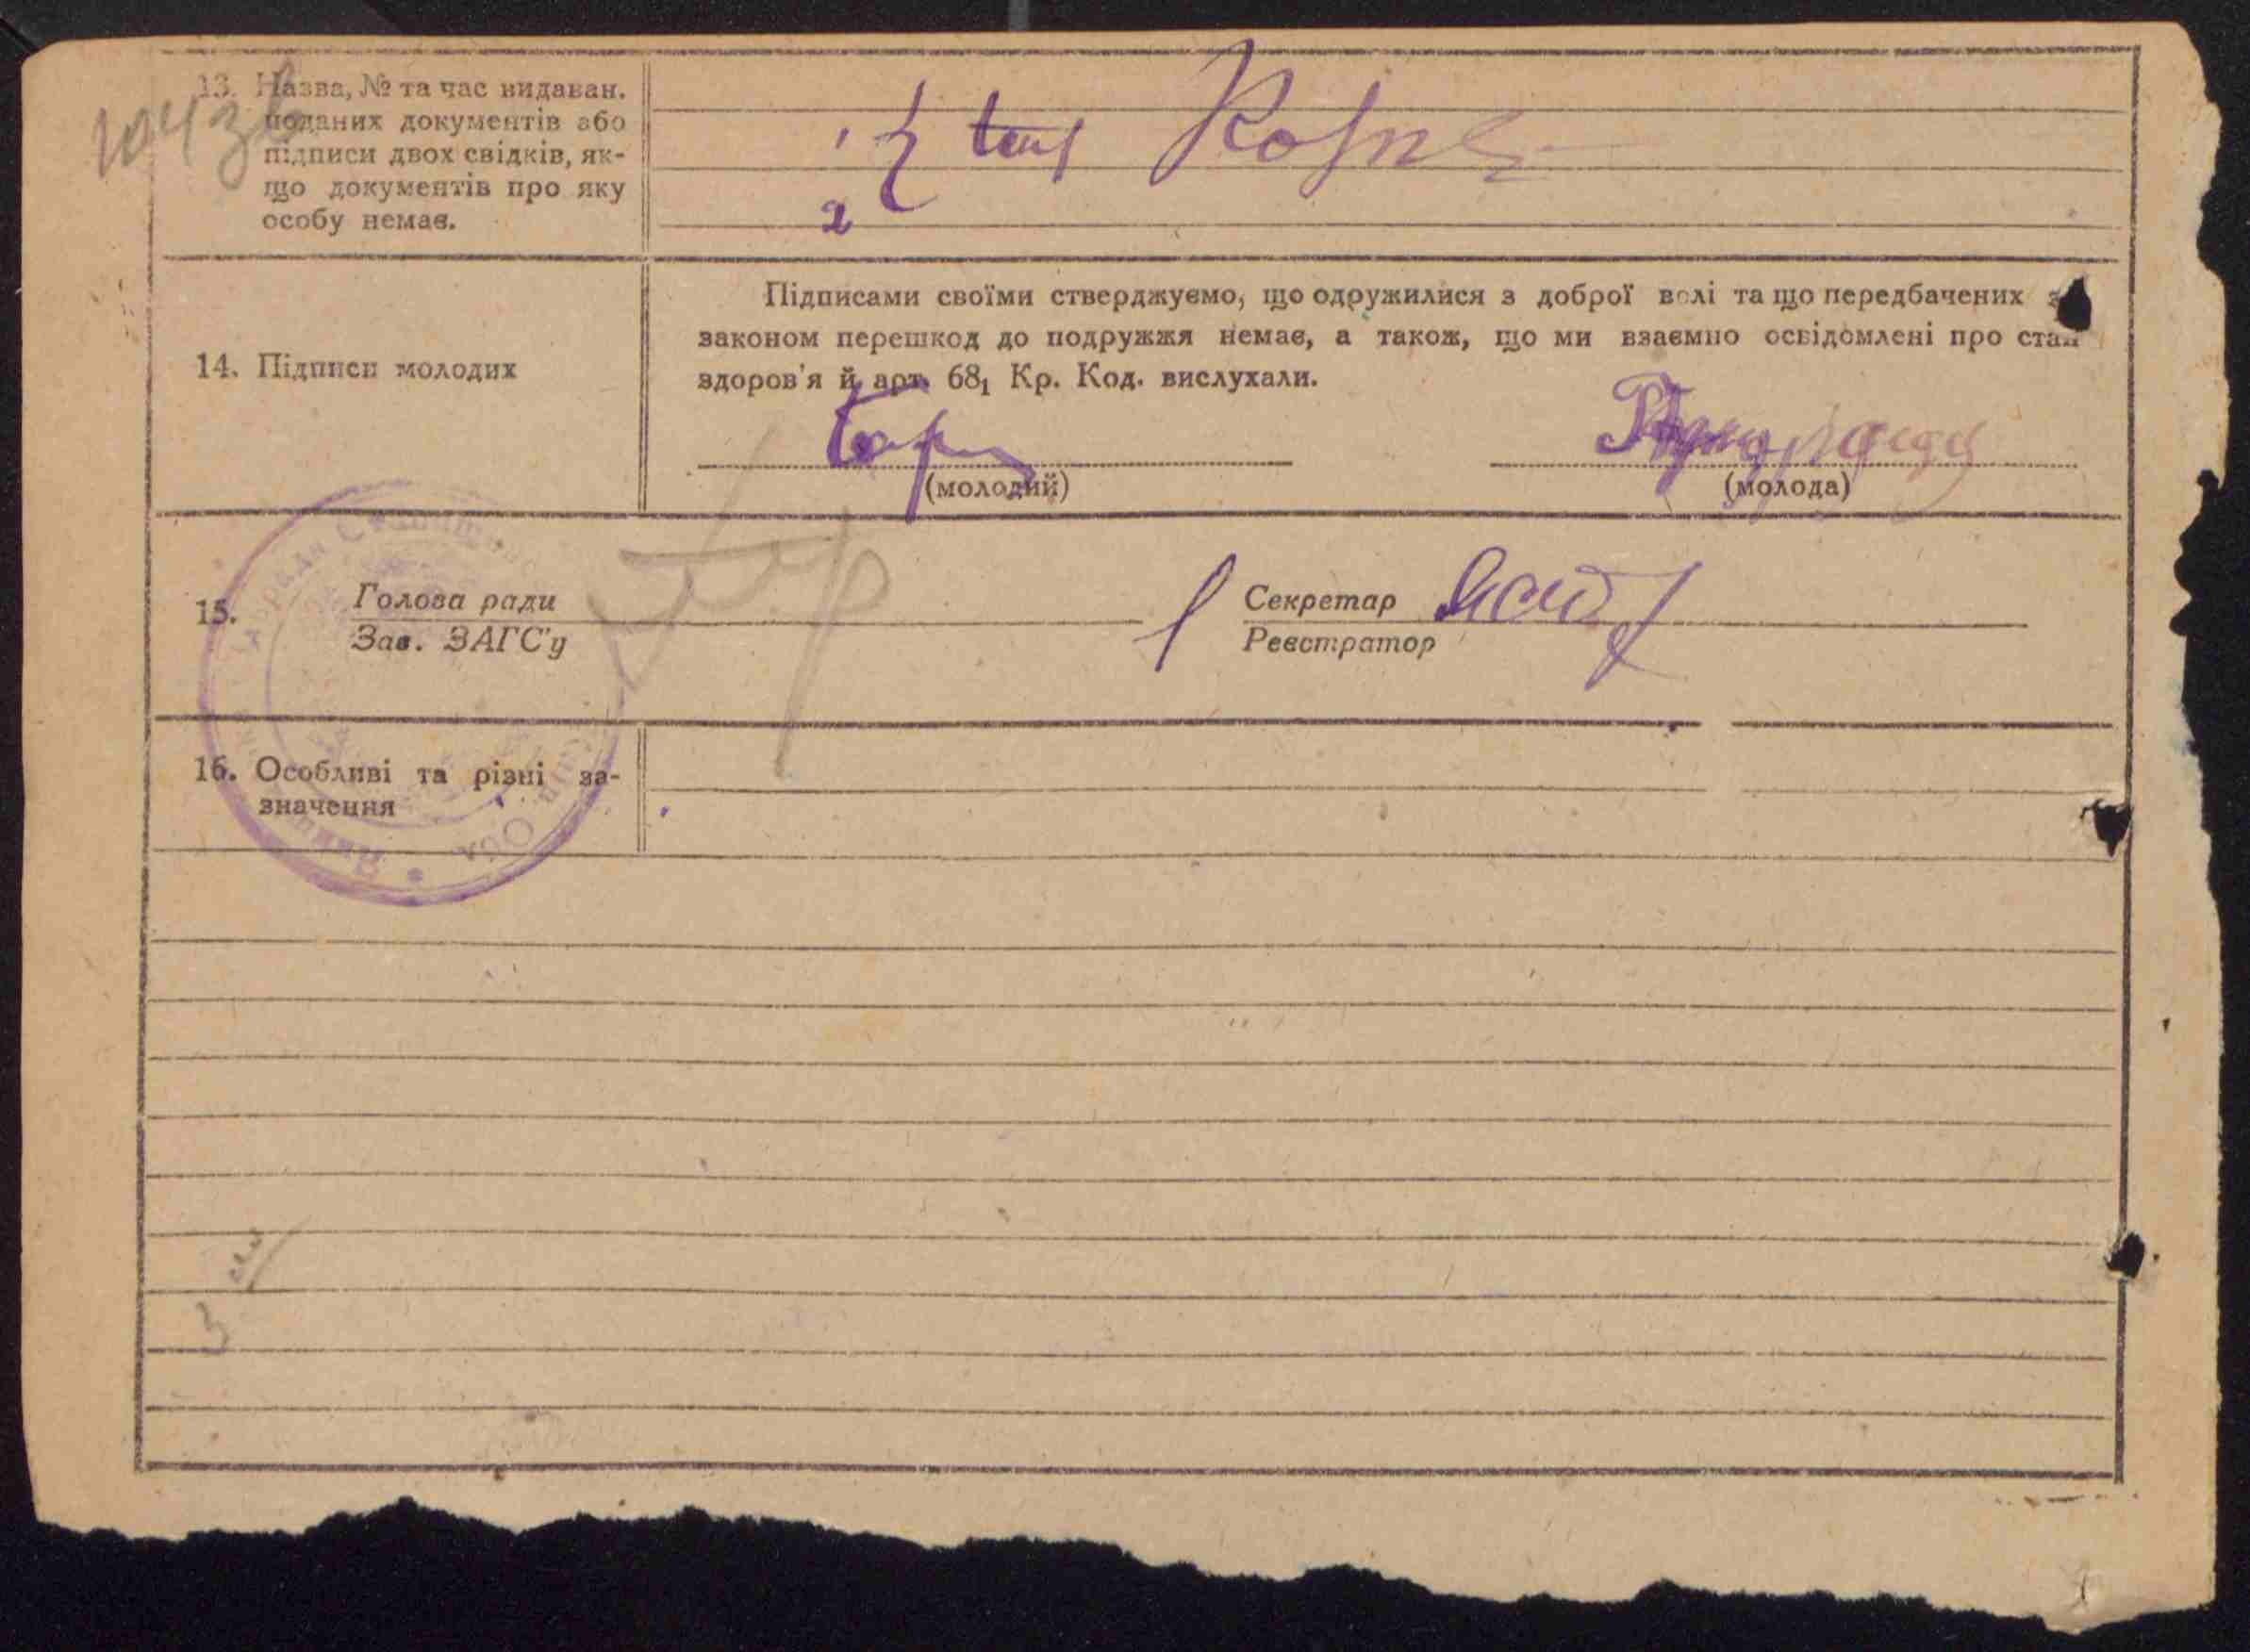 13. Назва, № та час видаван.
поданих документів або
підписи двох свідків, як-
що документів про яку
особу немає.
1
2
14. Підписи молодих
Підписами своїми стверджуємо, що одружилися з доброї волі та що передбачених
законом перешкод до подружжя немає, а також, що ми взаємно освідомлені про стан
здоров'я й арт. 68₁ Кр. Код. вислухали.
(молодий) (молода)
15. Голова ради Секретар
Зав. ЗАГС'у Реєстратор
16. Особливі та різні за-
значення
3